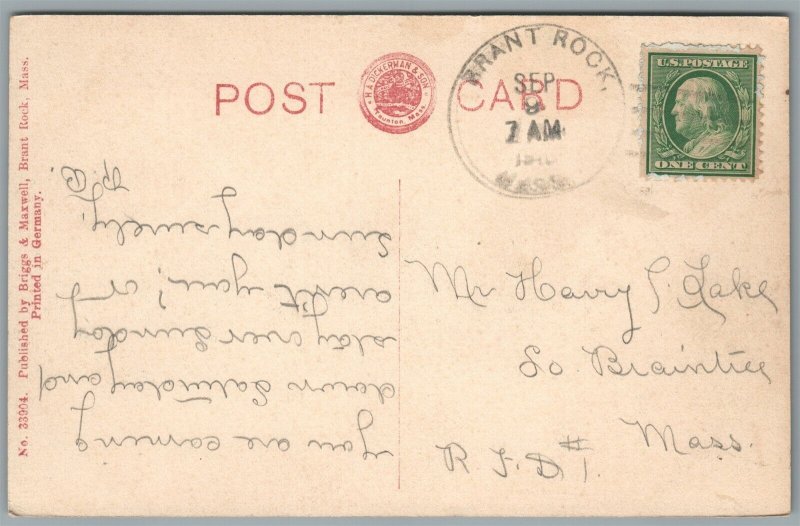 POST CARD
H.A. DICKERMAN & SON
Taunton, Mass.
BRANT ROCK,
SEP
9
7 AM
MASS.
U.S. POSTAGE
ONE CENT
No. 33904. Published by Briggs & Maxwell, Brant Rock, Mass.
Printed in Germany.
you are coming
down Saturday and
stay over Sunday
arent you, or
Sunday surely.
Mr Harry S. Lake
So Braintree
Mass.
R.F.D #1.